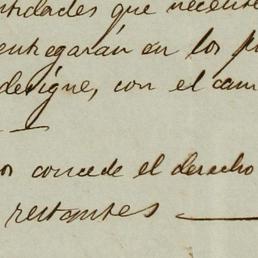 ntidades que necesite
entregarán en los p
designe, con el cam
os concede el derecho
restantes